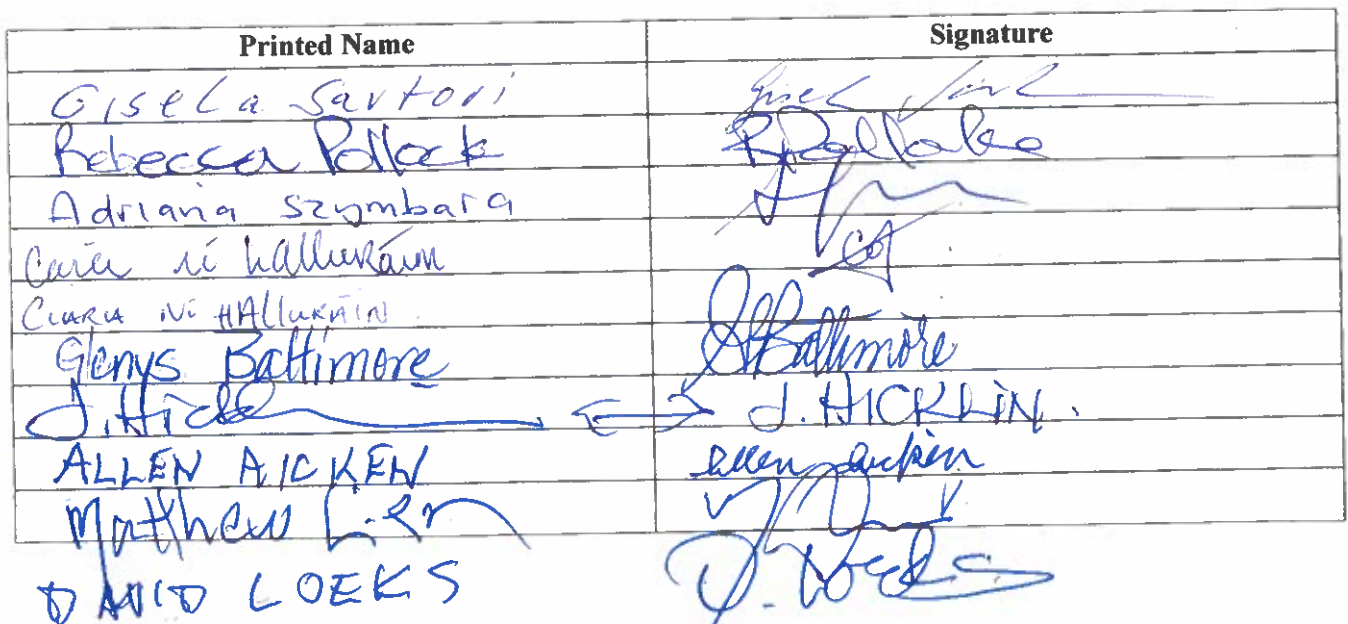 Printed Name Signature
Gisela Sartori
Rebecca Pollock
Adriana Szymbara
ní hAllukáin
CIARA Ní HAllUKÁIN
Glenys Baltimore GBaltimore
J. Hick J. HICKLIN.
ALLEN AICKEN allen aicken
Matthew Lien
DAVID LOEKS D. Loeks